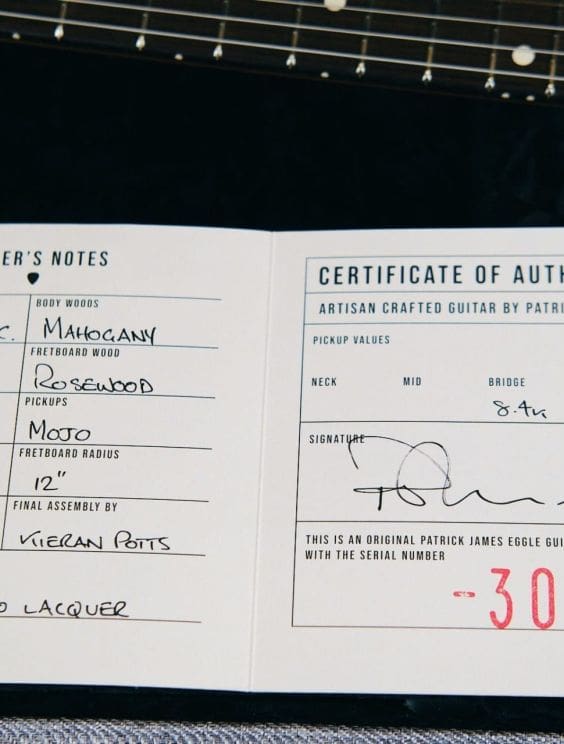 ER'S NOTES
BODY WOODS
C. MAHOGANY
FRETBOARD WOOD
ROSEWOOD
PICKUPS
MOJO
FRETBOARD RADIUS
12"
FINAL ASSEMBLY BY
KIERAN POTTS
O LACQUER
CERTIFICATE OF AUTH
ARTISAN CRAFTED GUITAR BY PATRI
PICKUP VALUES
NECK MID BRIDGE
8.4K
SIGNATURE
THIS IS AN ORIGINAL PATRICK JAMES EGGLE GUI
WITH THE SERIAL NUMBER
-30